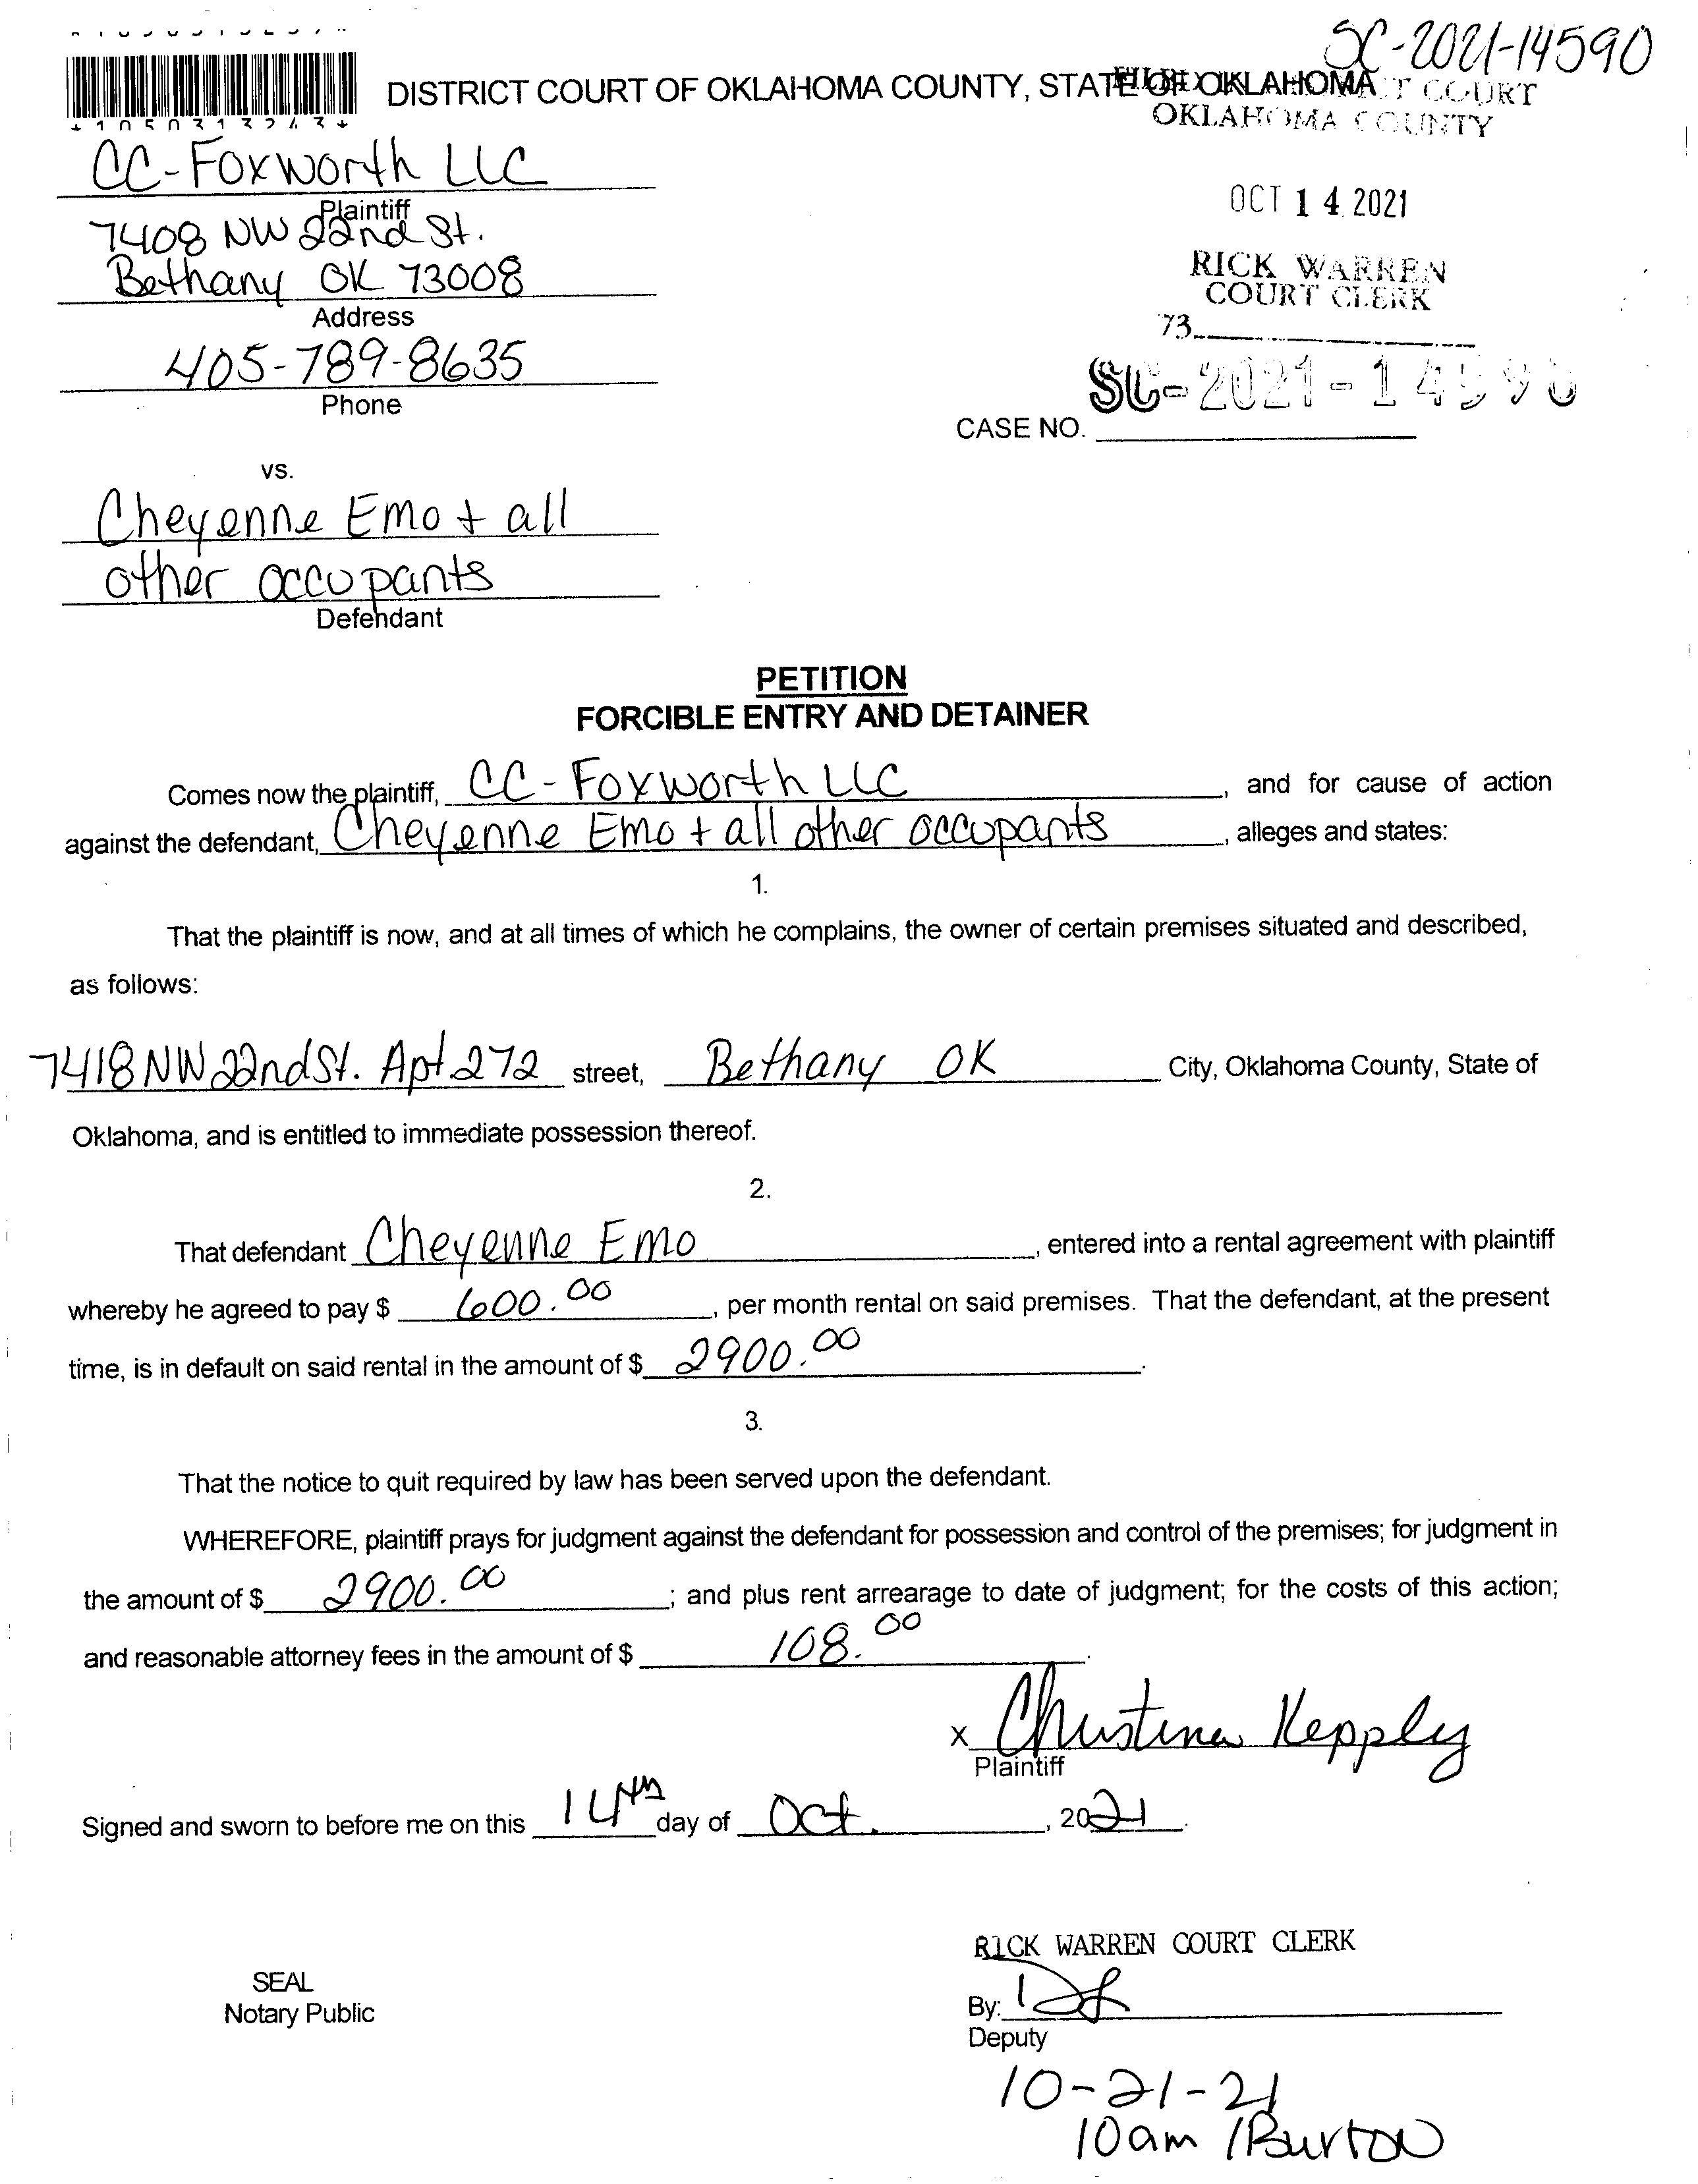 SC-2021-14590
DISTRICT COURT OF OKLAHOMA COUNTY, STATE OF OKLAHOMA
COURT
OKLAHOMA COUNTY
CC-Foxworth LLC
Plaintiff
OCT 14 2021
7408 NW 22nd St.
Bethany OK 73008
Address
RICK WARREN
COURT CLERK
73
405-789-8635
Phone
SC-2021-14590
CASE NO.
vs.
Cheyenne Emo + all
other occupants
Defendant
PETITION
FORCIBLE ENTRY AND DETAINER
Comes now the plaintiff, CC-Foxworth LLC, and for cause of action
against the defendant, Cheyenne Emo + all other occupants, alleges and states:
1.
That the plaintiff is now, and at all times of which he complains, the owner of certain premises situated and described,
as follows:
7418 NW 22nd St. Apt. 272 street, Bethany OK City, Oklahoma County, State of
Oklahoma, and is entitled to immediate possession thereof.
2.
That defendant Cheyenne Emo, entered into a rental agreement with plaintiff
whereby he agreed to pay $ 600.00, per month rental on said premises. That the defendant, at the present
time, is in default on said rental in the amount of $ 2900.00.
3.
That the notice to quit required by law has been served upon the defendant.
WHEREFORE, plaintiff prays for judgment against the defendant for possession and control of the premises; for judgment in
the amount of $ 2900.00; and plus rent arrearage to date of judgment; for the costs of this action;
and reasonable attorney fees in the amount of $ 108.00.
x Christina Kepply
Plaintiff
Signed and sworn to before me on this 14th day of Oct., 2021.
RICK WARREN COURT CLERK
SEAL
Notary Public
By:
Deputy
10-21-21
10am /Burton